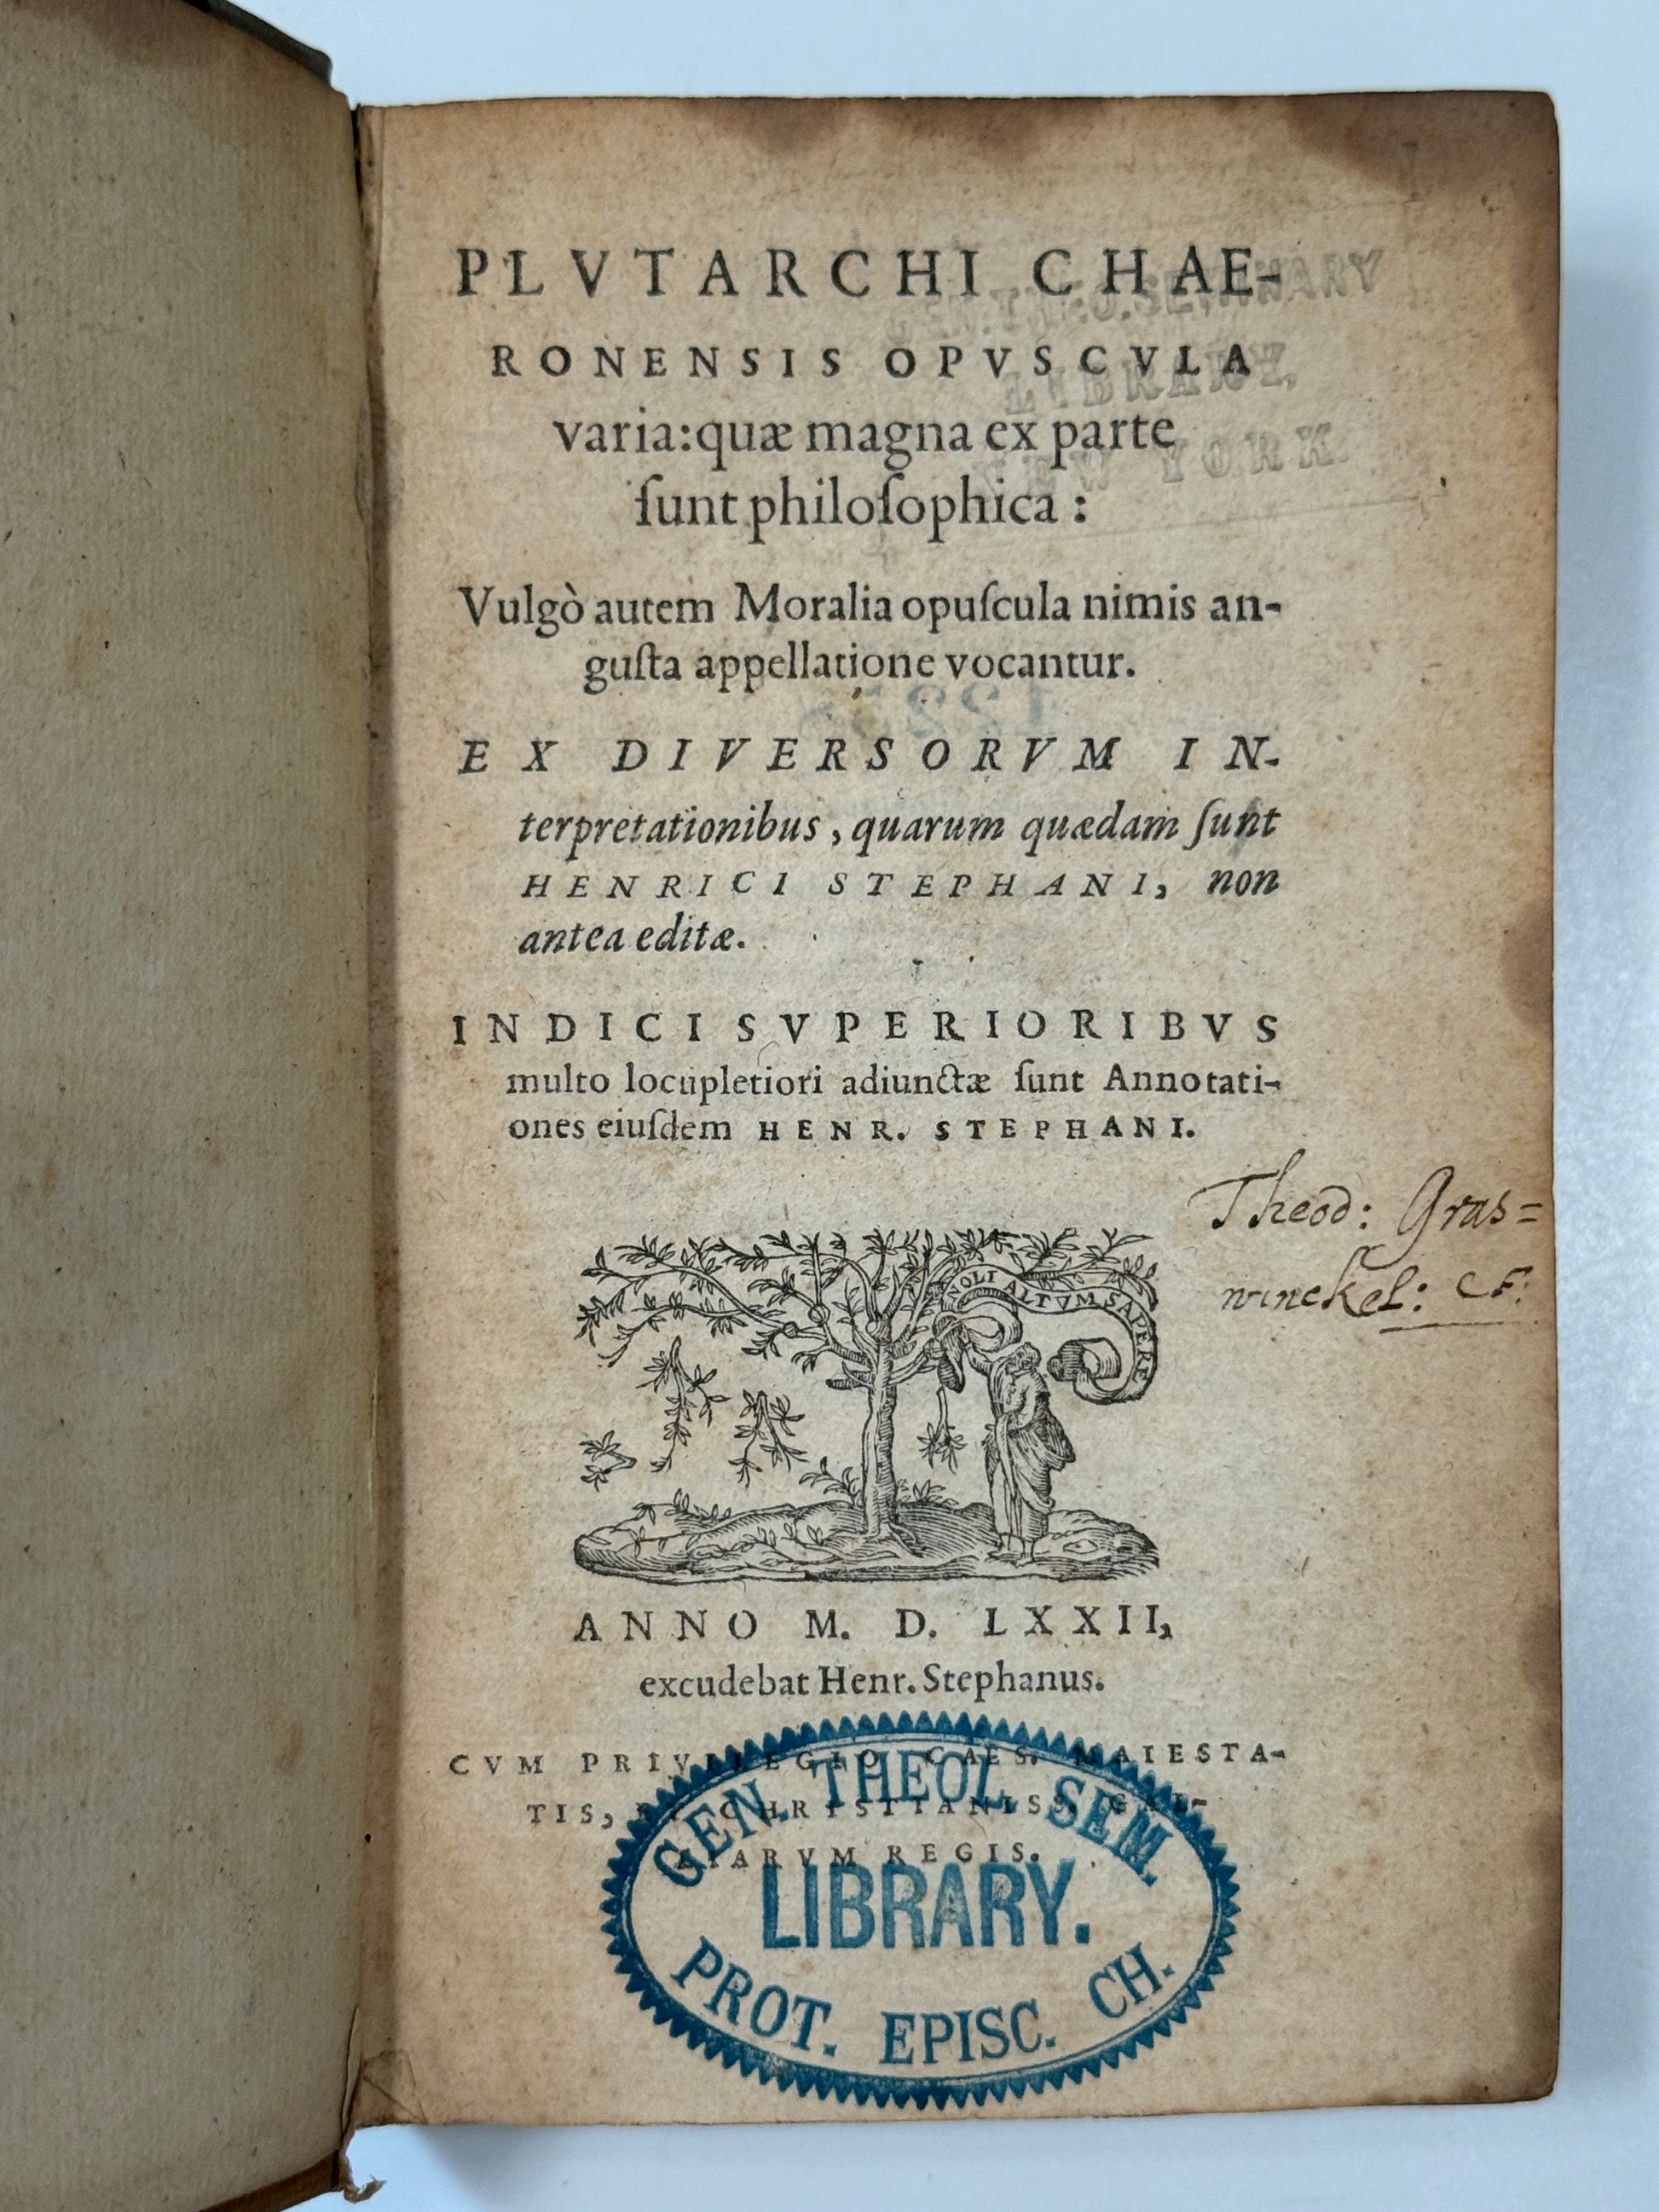 PLVTARCHI CHAE-
RONENSIS OPVSCVLA
varia: quæ magna ex parte
ſunt philoſophica :
Vulgò autem Moralia opuſcula nimis an-
guſta appellatione vocantur.
EX DIVERSORVM IN-
terpretationibus, quarum quædam ſunt
HENRICI STEPHANI, non
antea editæ.
INDICI SVPERIORIBVS
multo locupletiori adiunctæ ſunt Annotati-
ones eiuſdem HENR. STEPHANI.
Theod: Gras=
winckel: CF:
NOLI ALTVM SAPERE
ANNO M. D. LXXII,
excudebat Henr. Stephanus.
CVM PRIVILEGIO CAES. MAIESTA-
TIS, ET CHRISTIANISS. GAL-
LIARVM REGIS.
GEN. THEOL. SEM.
LIBRARY.
PROT. EPISC. CH.
GEN. THEO. SEMINARY
LIBRARY,
NEW YORK.